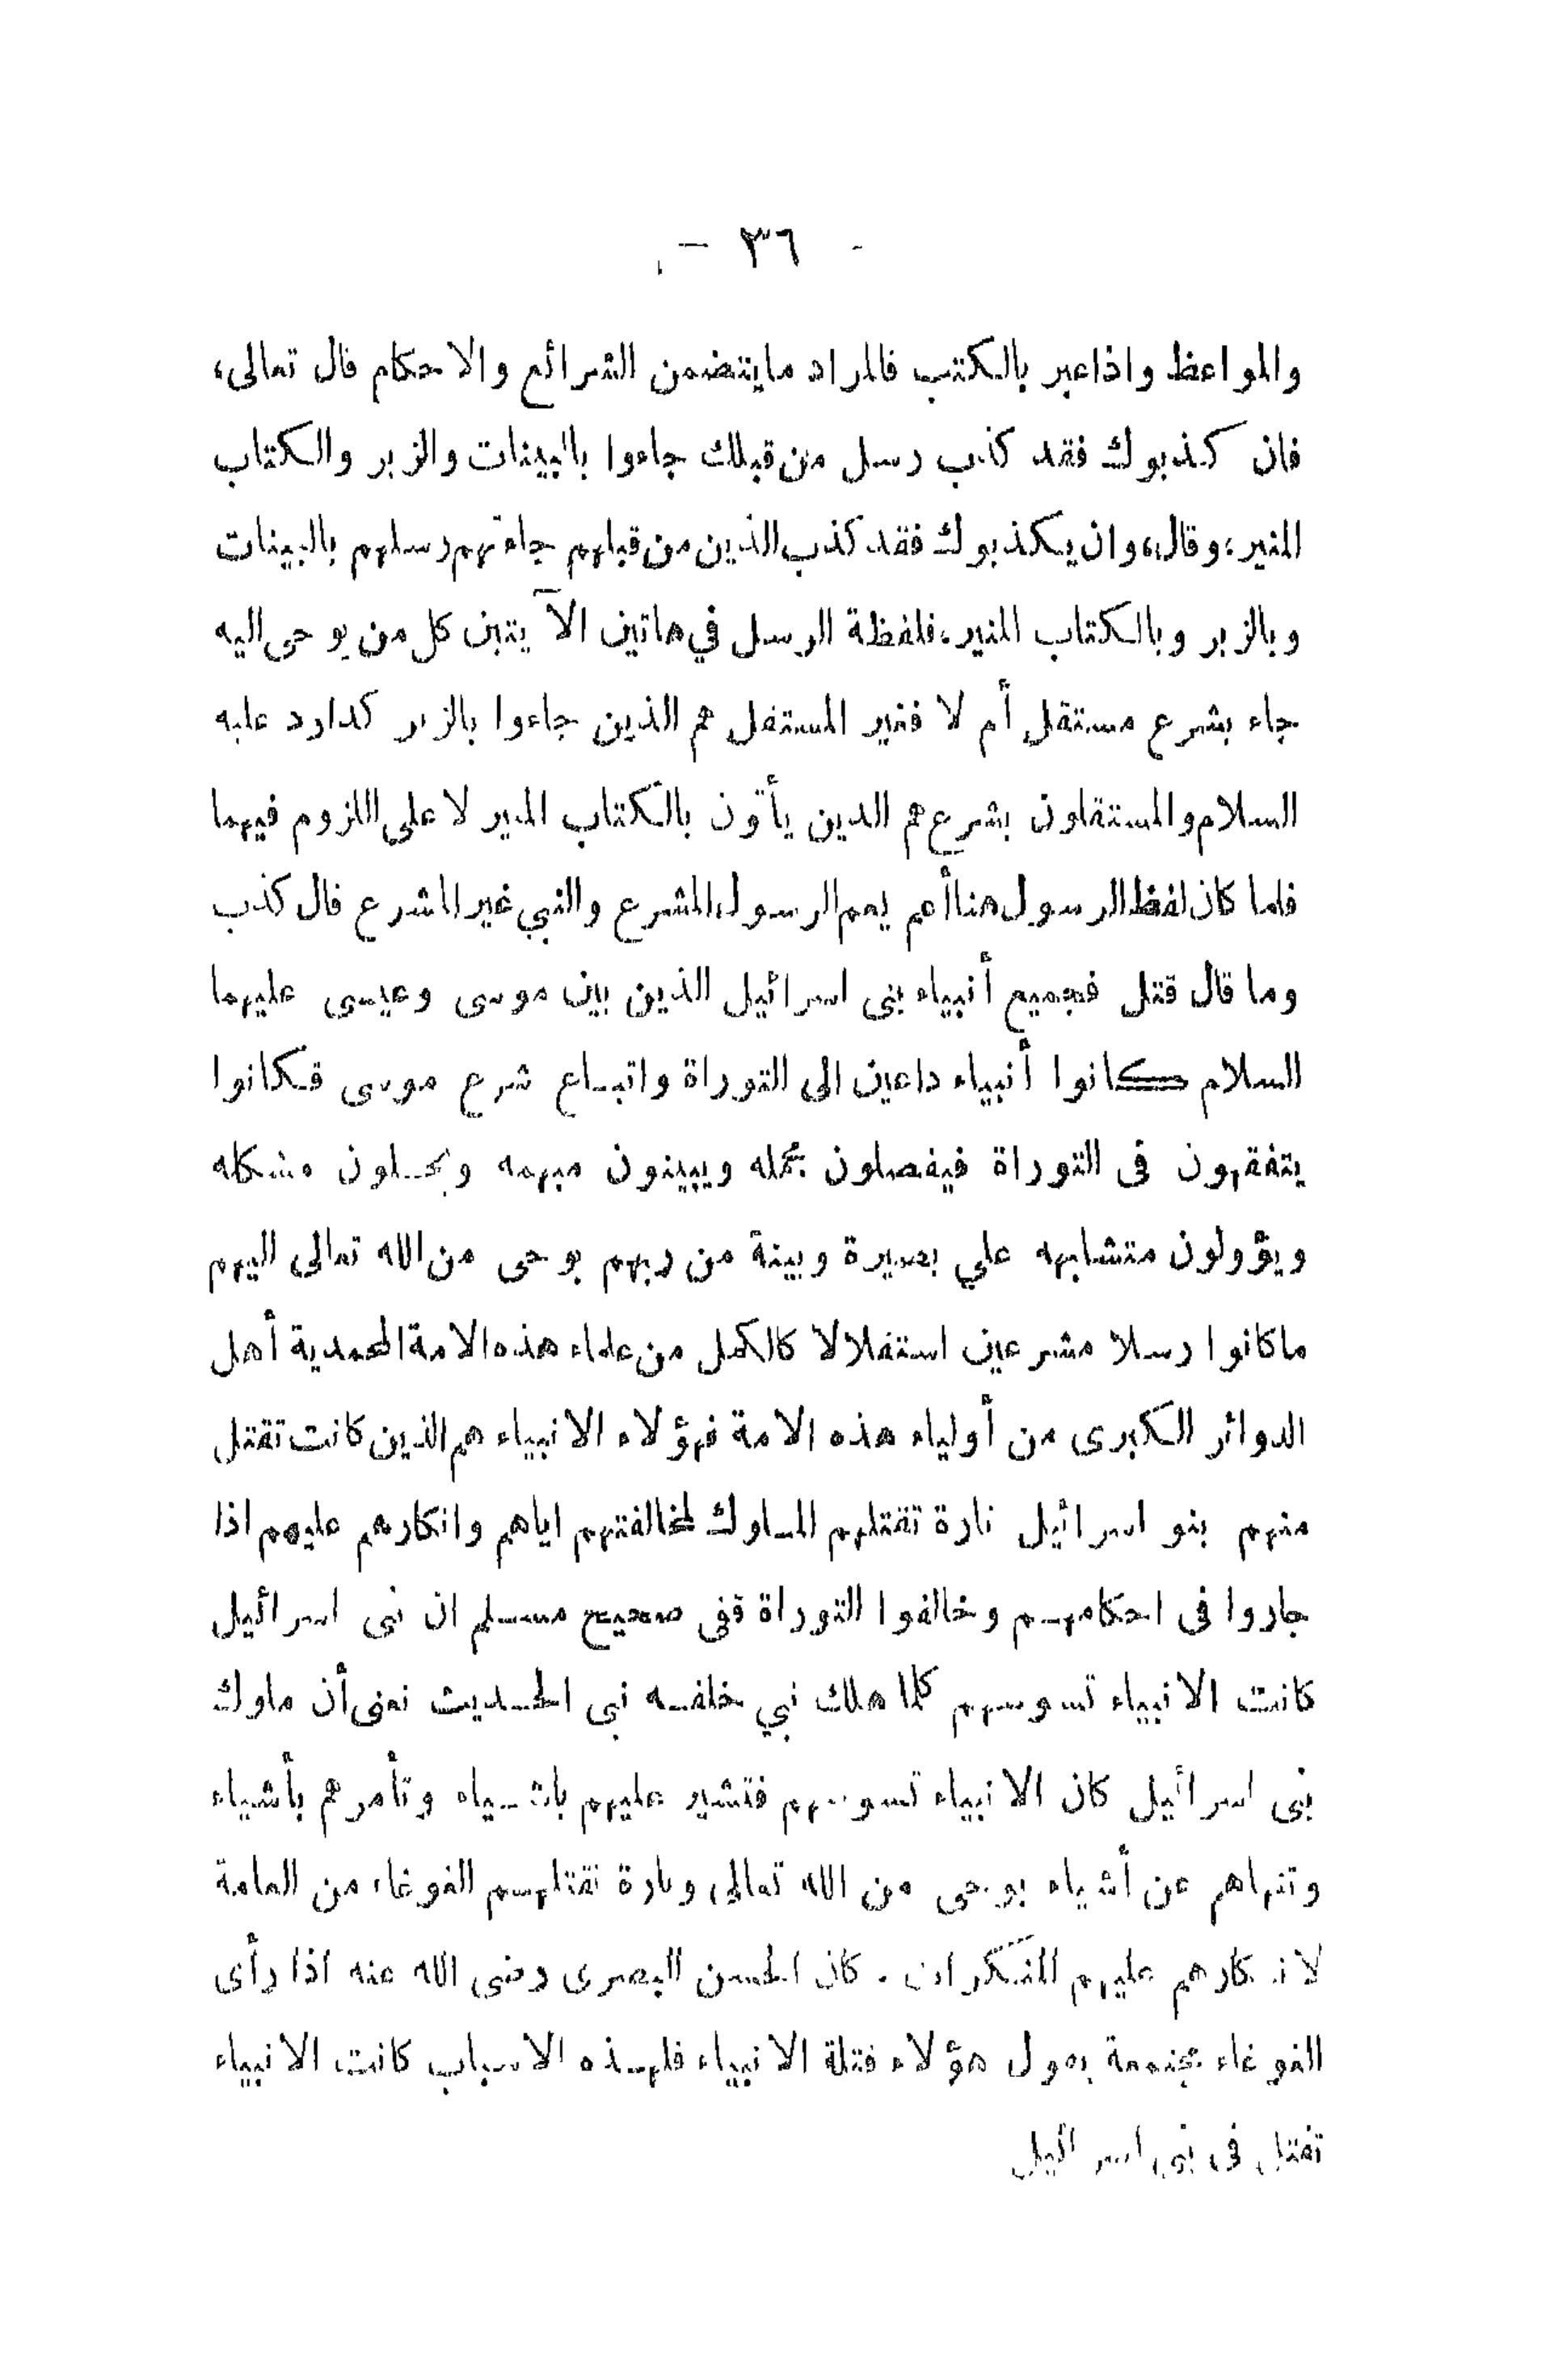 - ٣٦ -
والمواعظ واذاعبر بالكتب فالمراد مايتضمن الشرائع والاحكام قال تعالى،
فان كذبوك فقد كذب رسل من قبلك جاءوا بالبينات والزبر والكتاب
المنير،وقال،وان يكذبوك فقد كذب الذين من قبلهم جاءتهم رسلهم بالبينات
وبالزبر وبالكتاب المنير،فلفظة الرسل في هاتين الآيتين كل من يوحى اليه
جاء بشرع مستقل أم لا فغير المستقل هم الذين جاءوا بالزبر كداود عليه
السلام والمستقلون بشرع هم الدين يأتون بالكتاب المنير لا على اللزوم فيهما
فلما كان لفظ الرسول هنا أعم يعم الرسول المشرع والنبي غير المشرع قال كذب
وما قال قتل فجميع أنبياء بنى اسرائيل الذين بين موسى وعيسى عليهما
السلام كانوا أنبياء داعين الى التوراة واتباع شرع موسى فكانوا
يتفقهون فى التوراة فيفصلون مجمله ويبينون مبهمه ويحلون مشكله
ويؤولون متشابهه علي بصيرة وبينة من ربهم بوحى من الله تعالى اليهم
ماكانوا رسلا مشرعين استقلالا كالكمل من علماء هذه الامة المحمدية أهل
الدوائر الكبرى من أولياء هذه الامة فهؤلاء الانبياء هم الذين كانت تقتل
منهم بنو اسرائيل تارة تقتلهم الملوك لمخالفتهم اياهم وانكارهم عليهم اذا
جاروا فى احكامهم وخالفوا التوراة ففى صحيح مسلم ان بنى اسرائيل
كانت الانبياء تسوسهم كلما هلك نبي خلفه نبى الحديث نعنى أن ملوك
بنى اسرائيل كان الانبياء تسوسهم فتشير عليهم باشياء وتأمرهم بأشياء
وتنهاهم عن أشياء بوحى من الله تعالى وتارة تقتلهم الغوغاء من العامة
لانكارهم عليهم المنكرات . كان الحسن البصرى رضى الله عنه اذا رأى
الغوغاء مجتمعة يقول هؤلاء قتلة الانبياء فلهذه الاسباب كانت الانبياء
تقتل فى بنى اسرائيل